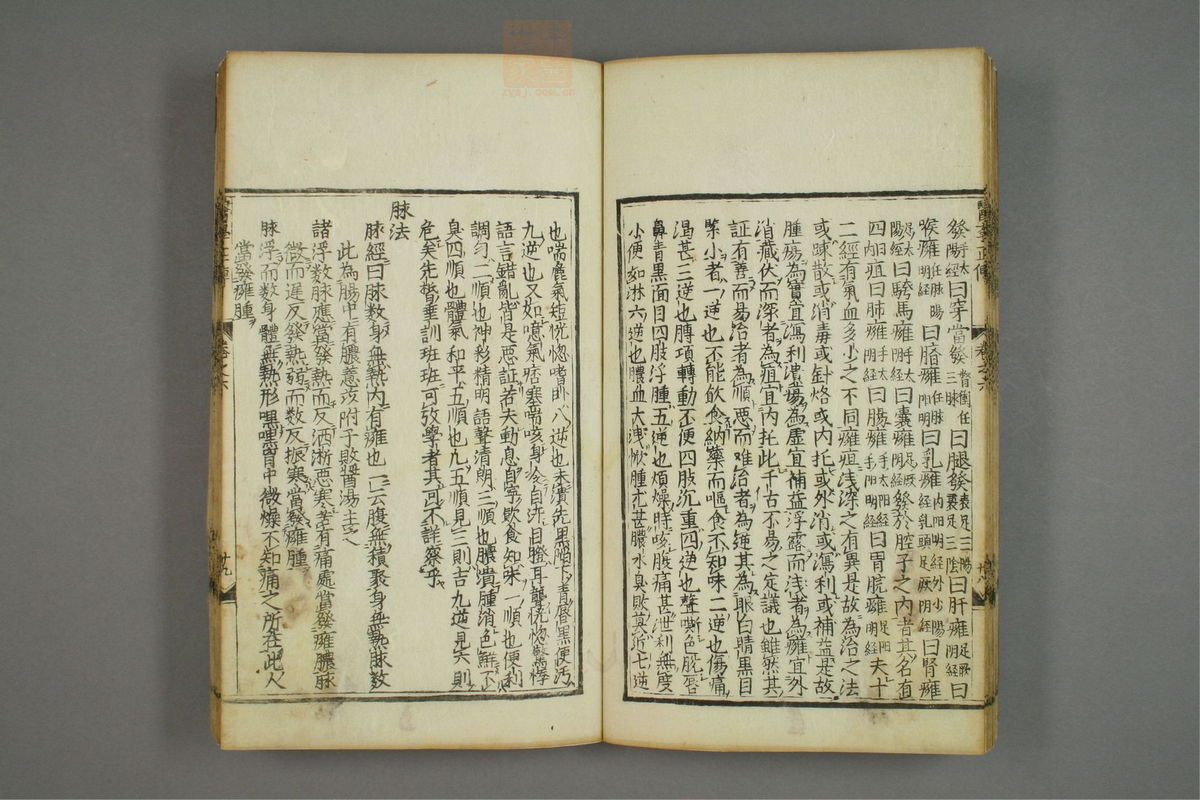 發手太陽經曰穿當發督衝任三脉曰腿發表足三陽裏足三陰曰肝癰足厥陰經曰
喉癰任脉陽明經曰臍癰任脉陽明曰乳癰内陽明經外少陽經乳頭足厥陰經曰腎癰
足太陽經曰跨馬癰手太陽經曰囊癰足厥陰經發於腔子之内者其名有
四曰疽曰肺癰手太陰經曰腸癰手太陽經手陽明經曰胃脘癰足陽明經夫十
二經有氣血多少之不同癰疽浅深之有異是故為治之法
或踈散或消毒或針烙或内托或外消或瀉利或補益是故
腫瘍為實宜瀉利潰瘍為虚宜補益浮露而浅者為癰宜外
消藏伏而深者為疽宜内托此千古不易之定議也雖然其
証有善而易治者為順悪而难治者為逆其為眼白睛黒目
緊小者一逆也不能飲食納藥而嘔食不知味二逆也傷痛
渇甚三逆也膊項轉動不便四肢沉重四逆也聲嘶色脱唇
鼻青黒面目四肢浮腫五逆也煩燥時咳腹痛甚泄利無度
小便如淋六逆也膿血大洩焮腫尤甚膿水臭敗莫近七逆
也喘麄氣短恍惚嗜卧八逆也未潰先黒陷下青唇黒便汚
九逆也又如噫氣痞塞喘咳身冷自汗目瞪耳聾恍惚驚悸
語言錯亂皆是悪証者夫動息自寧飲食知味一順也便利
調匀二順也神彩精明語聲清朗三順也膿潰腫消色鮮不
臭四順也體氣和平五順也凡五順見三則吉九逆見六則
危矣先哲垂訓班班可攷學者其可不詳察乎
脉法
脉經曰脉数身無熱内有癰也一云腹無積聚身無熱脉数
此為腸中有膿薏苡附子敗醤湯主之
諸浮数脉應當發熱而反洒淅悪寒若有痛處當發癰膿脉
微而遲反發熱弱而数反振寒當發癰腫
脉浮而数身體無熱形嘿嘿胃中微燥不知痛之所在此人
當發癰腫